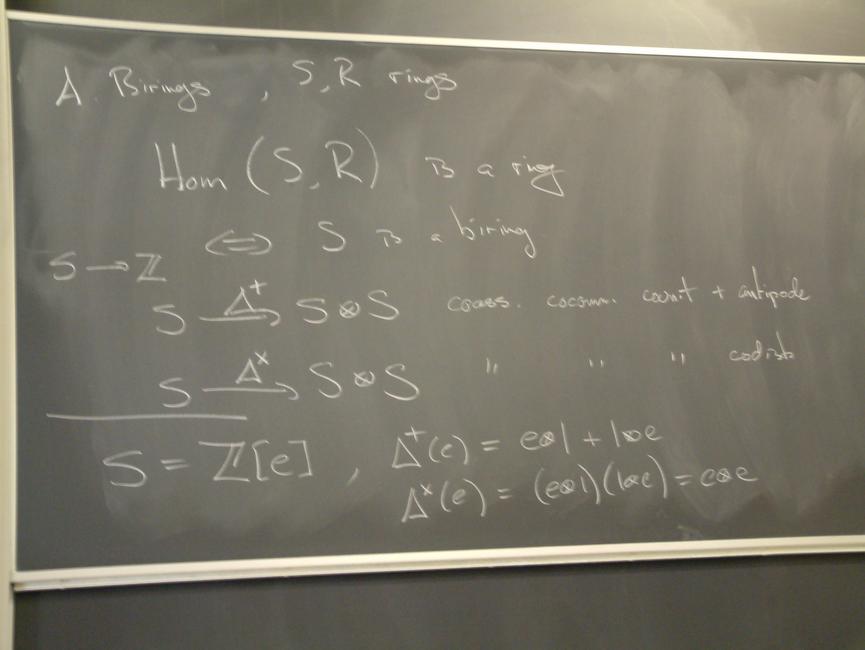 A. Birings , S, R rings
Hom (S, R) is a ring
⇔ S is a biring
S → ℤ
S —Δ⁺→ S ⊗ S coass. cocomm. counit + antipode
S —Δˣ→ S ⊗ S " " " codistr
S = ℤ[e] , Δ⁺(e) = e⊗1 + 1⊗e
Δˣ(e) = (e⊗1)(1⊗e) = e⊗e